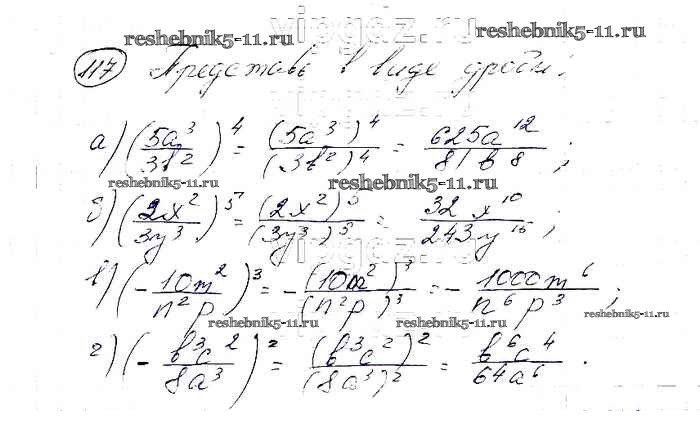 vipgdz.ru
reshebnik5-11.ru reshebnik5-11.ru
117 Представь в виде дроби:
а) (5a³/3b²)⁴ = (5a³)⁴/(3b²)⁴ = 625a¹²/81b⁸ ;
reshebnik5-11.ru reshebnik5-11.ru
б) (2x²/3y³)⁵ = (2x²)⁵/(3y³)⁵ = 32x¹⁰/243y¹⁵ ;
в) (-10m²/n²p)³ = -(10m²)³/(n²p)³ = -1000m⁶/n⁶p³ ;
reshebnik5-11.ru reshebnik5-11.ru reshebnik5-11.ru
г) (-b³c²/8a³)² = (b³c²)²/(8a³)² = b⁶c⁴/64a⁶ .